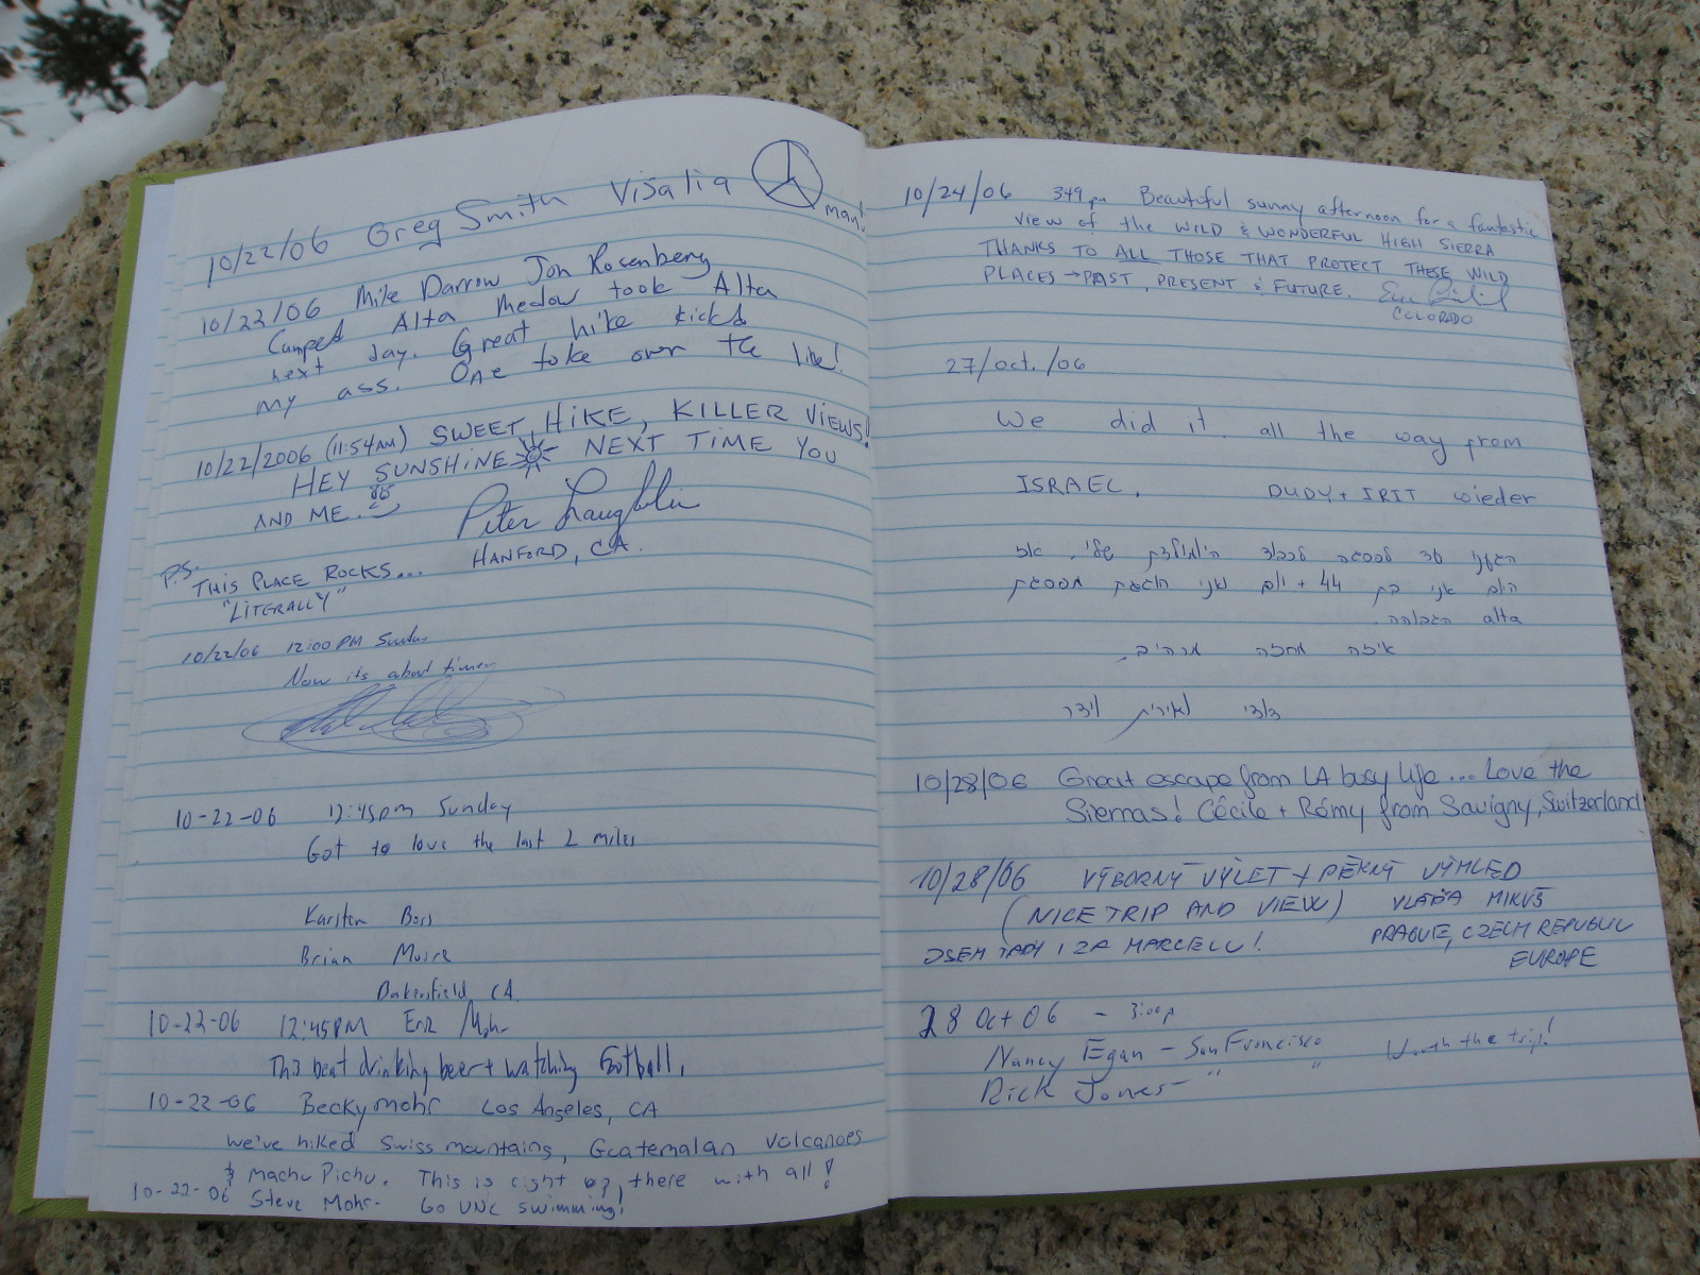 10/22/06 Greg Smith Visalia
man!
10/22/06 Mike Darrow Jon Rosenberg
Camped Alta Medow took Alta
next day. Great hike kicked
my ass. One toke over the line!
10/22/2006 (11:54AM) SWEET HIKE, KILLER VIEWS!
HEY SUNSHINE NEXT TIME YOU
AND ME.
Peter Laughlin
HANFORD, CA.
P.S.
THIS PLACE ROCKS...
"LITERALLY"
10/22/06 12:00 PM Sunday
Now its about time
10-22-06 12:45pm Sunday
Got to love the last 2 miles
Karsten
Brian
Bakersfield CA
10-22-06 12:45PM Eric Mohr
This beat drinking beer + watching Football.
10-22-06 Becky Mohr Los Angeles, CA
We've hiked Swiss mountains, Guatemalan Volcanoes
& Machu Pichu. This is right up there with all!
10-22-06 Steve Mohr- Go UNC swimming!
10/24/06 349 pm Beautiful sunny afternoon for a fantastic
view of the WILD & WONDERFUL HIGH SIERRA
THANKS TO ALL THOSE THAT PROTECT THESE WILD
PLACES → PAST, PRESENT & FUTURE.
COLORADO
27/oct./06
We did it all the way from
ISRAEL, DUDY + IRIT wieder
הגעתי עד לפסגה לכבוד היומולדת שלי. אז
היום אני בת 44 + יום ואני חוגגת בפסגת
alta הגבוהה.
איזה מחזה מרהיב.
דודי ואירית וידר
10/28/06 Great escape from LA busy life ... Love the
Sierras! Cécile + Rémy from Savigny, Switzerland
10/28/06 VÝBORNÝ VÝLET + PĚKNÝ VÝHLED
(NICE TRIP AND VIEW) VLAĎA MIKUŠ
JSEM TADY I ZA MARCELU! PRAGUE, CZECH REPUBLIC
EUROPE
28 Oct 06 - 3:00p
Nancy Egan - San Francisco Worth the trip!
Rick Jones - " "